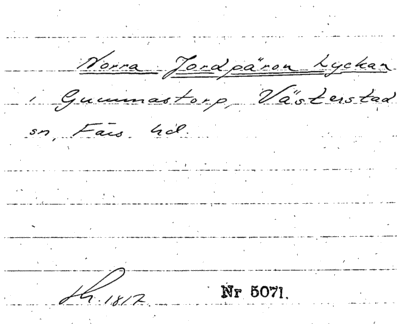 Norra Jordpäron Lyckan
i Gummastorp, Västerstad
sn, Färs hd.
1812 Nr 5071.